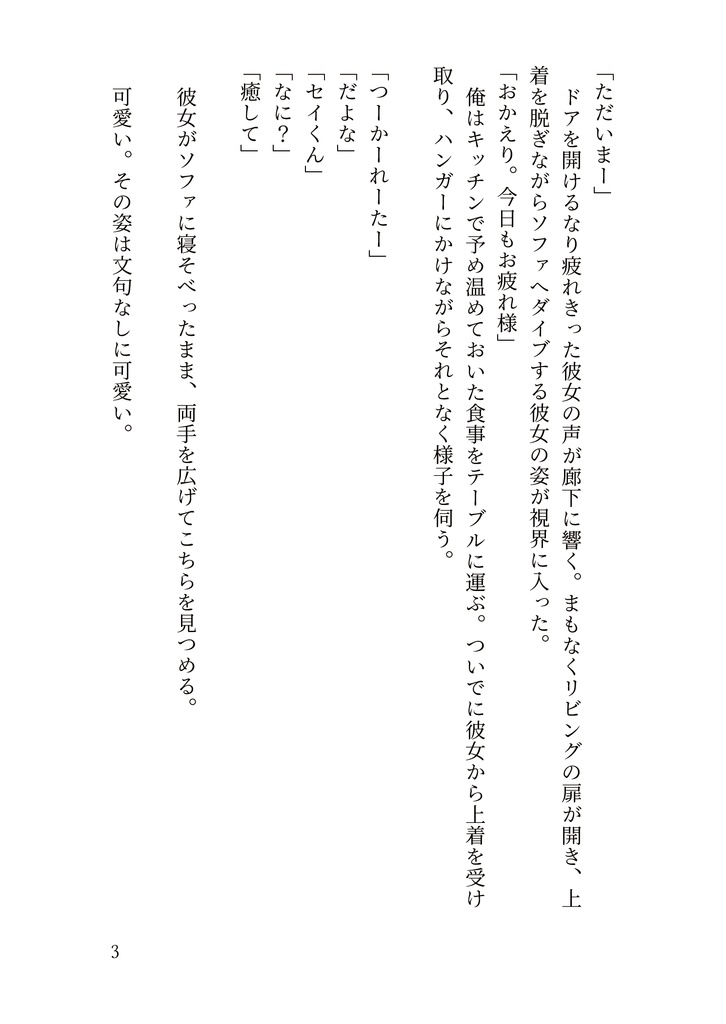 「ただいまー」
　ドアを開けるなり疲れきった彼女の声が廊下に響く。まもなくリビングの扉が開き、上
着を脱ぎながらソファへダイブする彼女の姿が視界に入った。
「おかえり。今日もお疲れ様」
　俺はキッチンで予め温めておいた食事をテーブルに運ぶ。ついでに彼女から上着を受け
取り、ハンガーにかけながらそれとなく様子を伺う。
「つーかーれーたー」
「だよな」
「セイくん」
「なに？」
「癒して」
　彼女がソファに寝そべったまま、両手を広げてこちらを見つめる。
　可愛い。その姿は文句なしに可愛い。
3